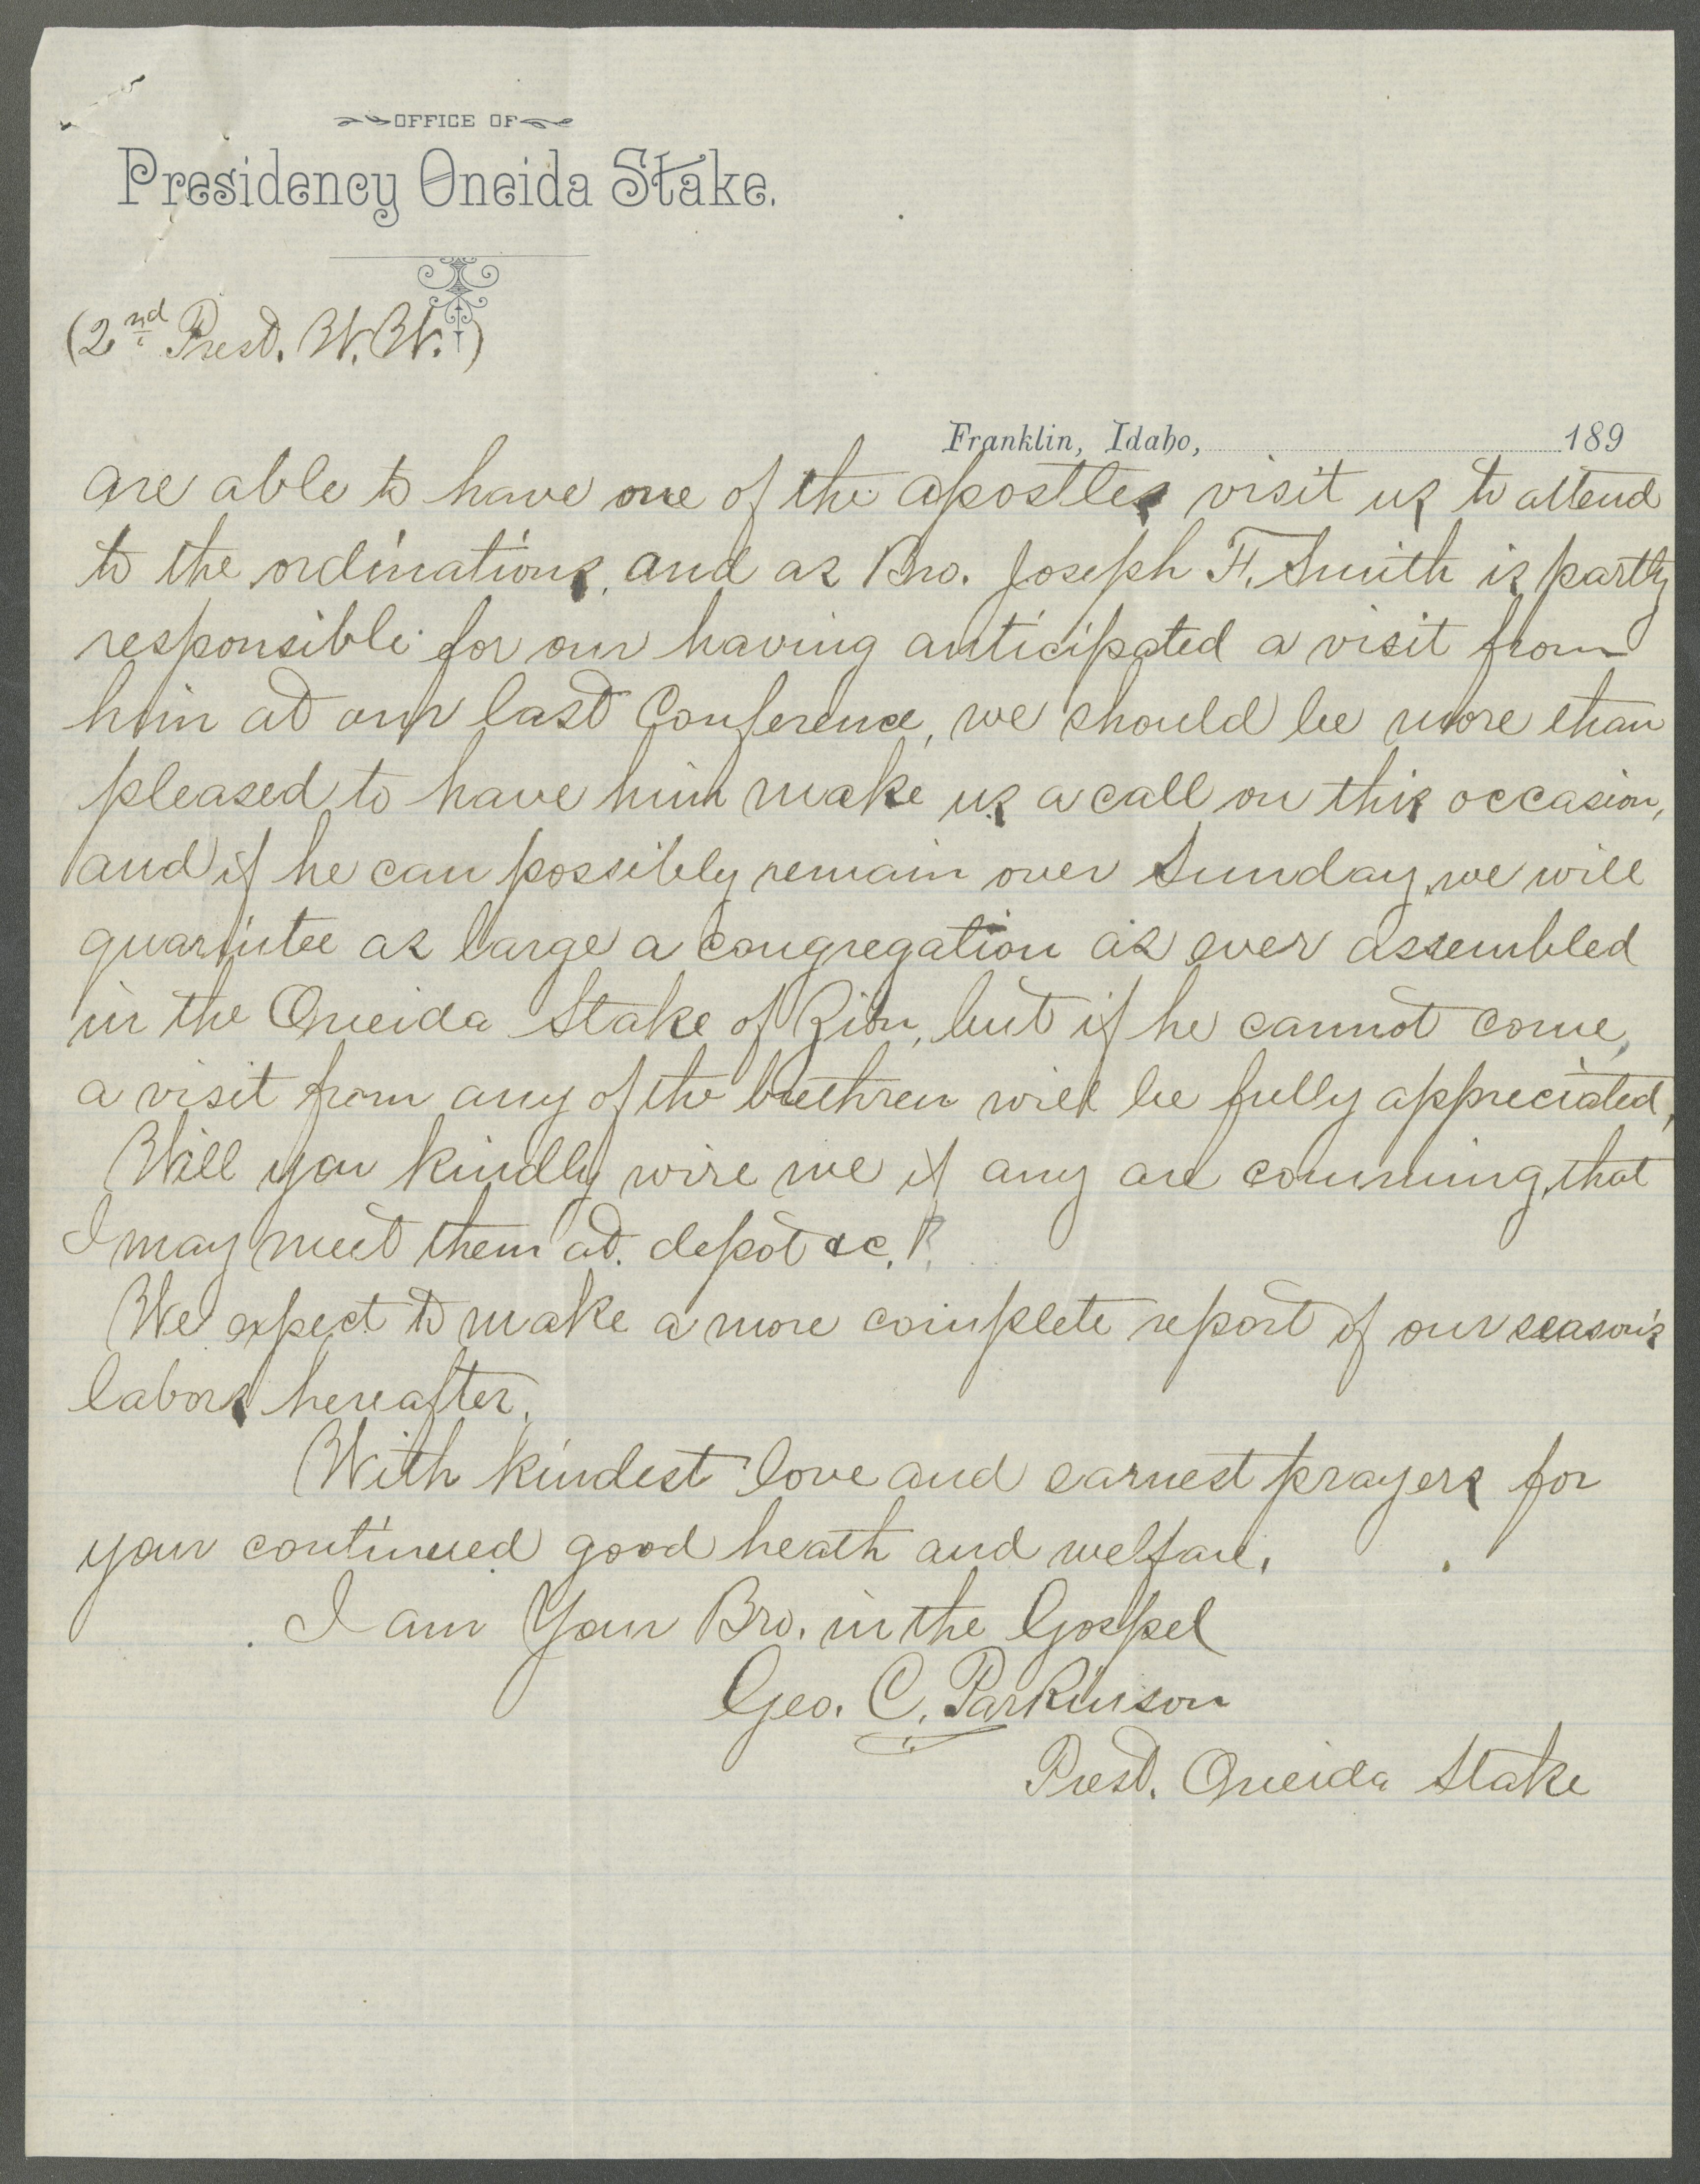 OFFICE OF
Presidency Oneida Stake.
(2nd Prest. W.W.)
Franklin, Idaho, 189
are able to have one of the apostles visit us to attend
to the ordinations, and as Bro. Joseph F. Smith is partly
responsible for our having anticipated a visit from
him at our last Conference, we should be more than
pleased to have him make us a call on this occasion,
and if he can possibly remain over Sunday, we will
guarintee as large a congregation as ever assembled
in the Oneida Stake of Zion, but if he cannot come,
a visit from any of the brethren will be fully appreciated,
Will you kindly wire me if any are comming, that
I may meet them at depot &c.?
We expect to make a more complete report of our season's
labors hereafter.
With kindest love and earnest prayers for
your continued good heath and welfare,
I am Your Bro. in the Gospel
Geo. C. Parkinson
Prest. Oneida Stake